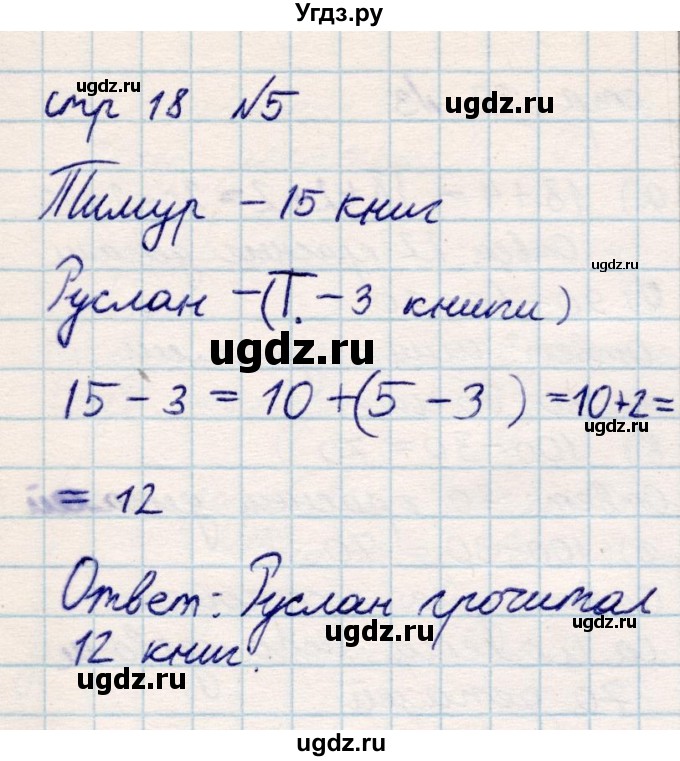 Угдз.ру
стр 18 №5
ugdz.ru
ugdz.ru
Тимур – 15 книг
ugdz.ru
Руслан – (Т. – 3 книги)
ugdz.ru
15 – 3 = 10 + (5 – 3) = 10 + 2 =
ugdz.ru
= 12
Ответ: Руслан прочитал
ugdz.ru
ugdz.ru
12 книг.
ugdz.ru
ugdz.ru